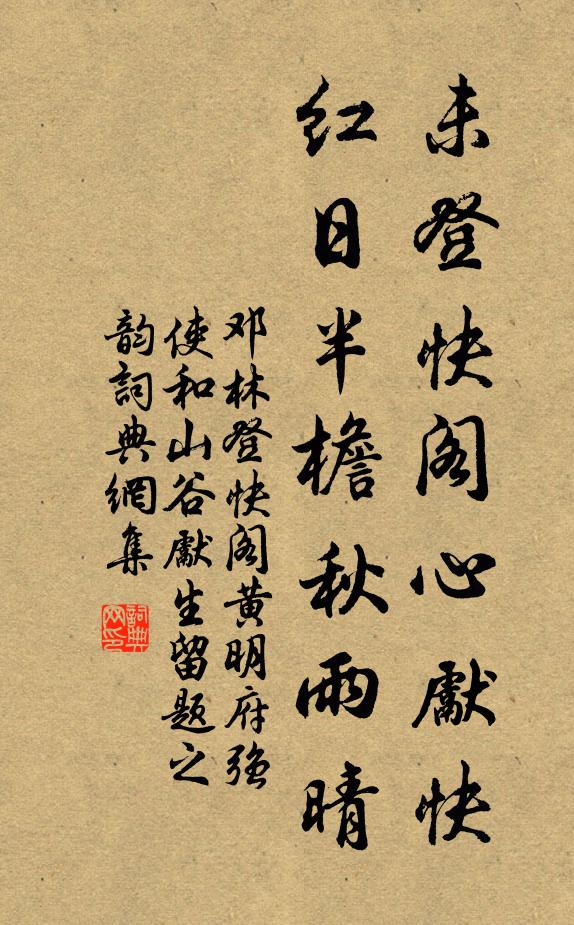 未登快阁心獻快
红日半檐秋雨晴
邓林登快阁黄明府强
使和山谷獻生留题之
韵詞典網集
詞典网印